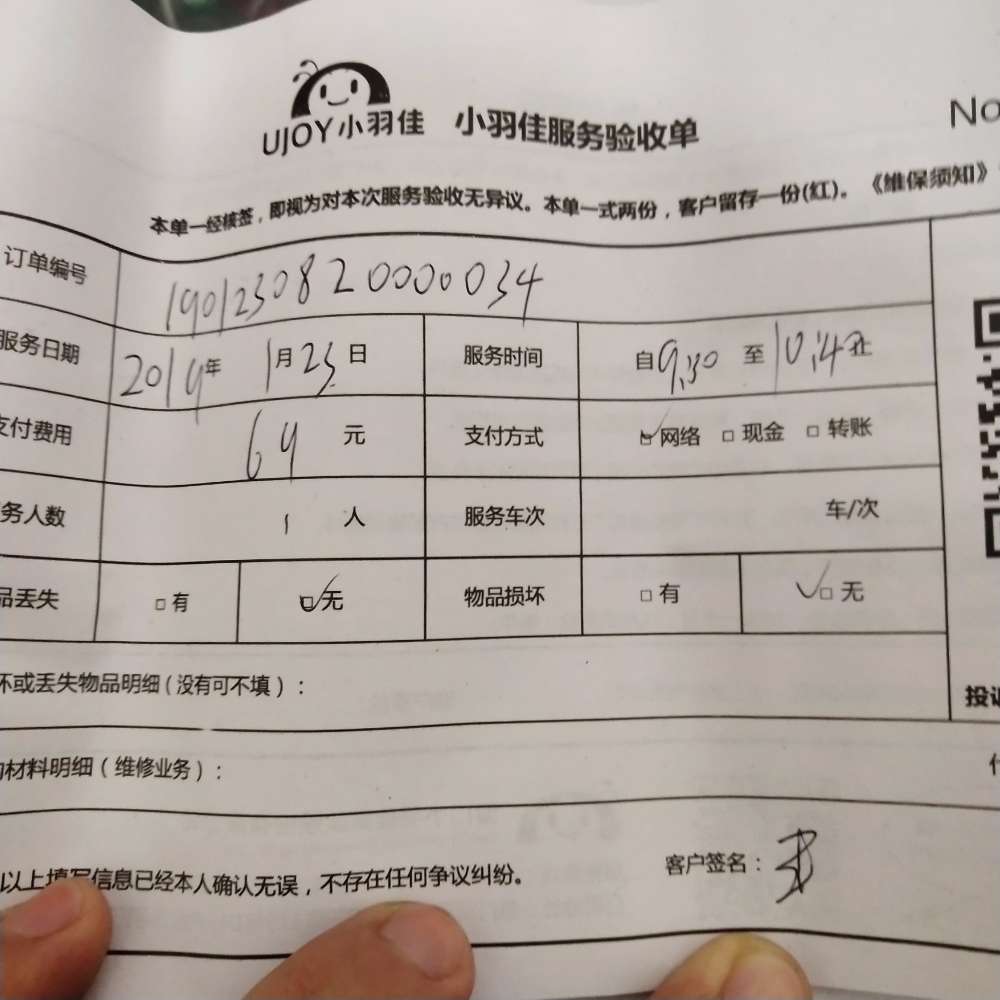 UJOY小羽佳 小羽佳服务验收单 No
本单一经核签，即视为对本次服务验收无异议。本单一式两份，客户留存一份(红)。《维保须知》
订单编号 1901230820000034
服务日期 2019年 1月23日 服务时间 自9:30 至10:4 止
支付费用 69 元 支付方式 网络 □ 现金 □ 转账
务人数 1 人 服务车次 车/次
品丢失 □ 有 ☑无 物品损坏 □ 有 ✓□ 无
坏或丢失物品明细（没有可不填）：
投诉
材料明细（维修业务）：
以上填写信息已经本人确认无误，不存在任何争议纠纷。 客户签名：